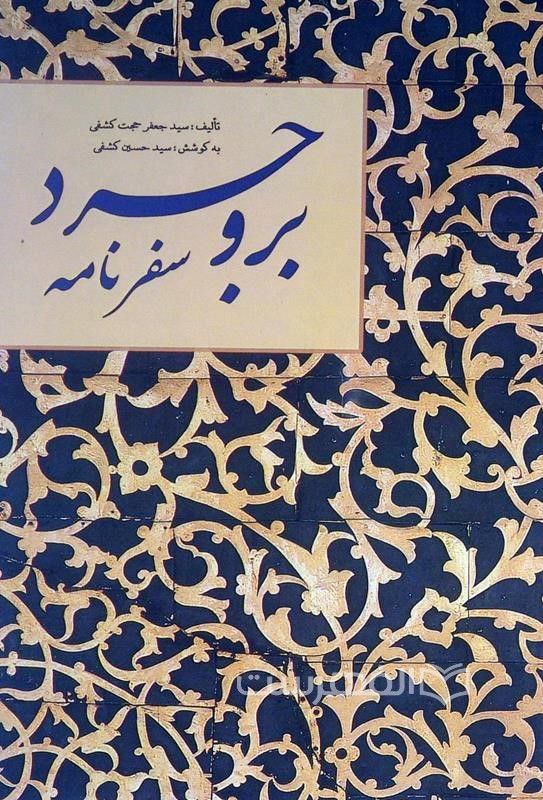 تألیف: سید جعفر حجت کشفی
به کوشش: سید حسین کشفی
بروجرد
سفرنامه
الفهرست